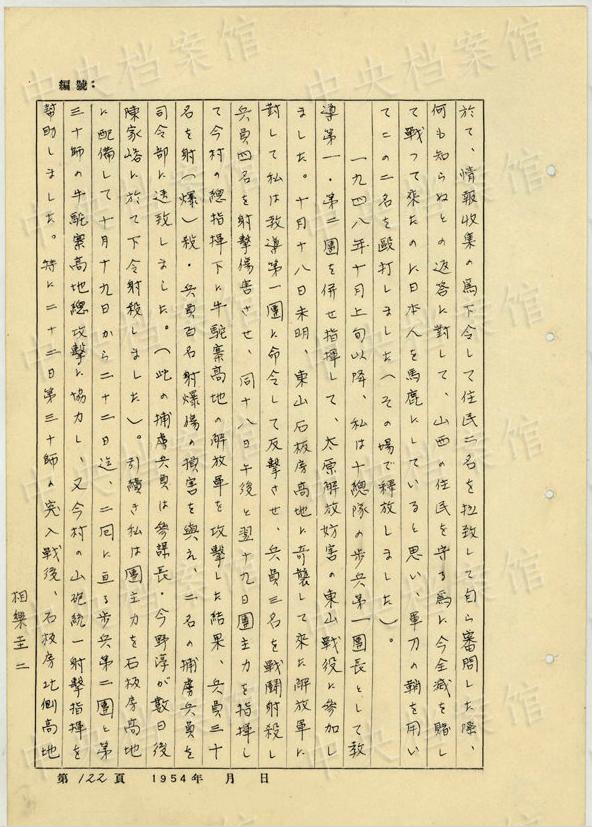 編號：
於て、情報收集の爲下令して住民二名を拉致して自ら審問した際、
何も知らぬとの返答に対して、山西の住民を守る爲に今全滅を賭し
て戰って来たのに日本人を馬鹿にしていると思い、軍刀の鞘を用い
てこの二名を毆打しました（その場で釋放しました）。
一九四八年十月上旬以降、私は十總隊の歩兵第一團長として教
導第一・第二團を併せ指揮して、太原解放妨害の東山戰役に参加し
ました。十月十八日未明、東山石板房高地に奇襲して来た解放軍に
対して私は教導第一團に命令して反擊させ、兵員三名を戰鬪射殺し
兵員四名を射擊傷害させ、同十八日午後と翌十九日團主力を指揮し
て今村の總指揮下に牛駝寨高地の解放軍を攻擊した結果、兵員三十
名を射（爆）殺・兵員百名射爆傷の損害を與え、二名の捕虜兵員を
司令部に送致しました。（此の捕虜兵員は參謀長・今野淳が數日後
陳家峪に於て下令射殺しました）。引續き私は團主力を石板房高地
に配備して十月十九日から二十二日迄、二回に亘る歩兵第二團と第
三十師の牛駝寨高地總攻擊に協力し、又今村の山砲統一射擊指揮を
幇助しました。特に二十二日第三十師の突入戰後、石板房北側高地
相樂圭二
第122頁 1954年 月 日
中央档案馆